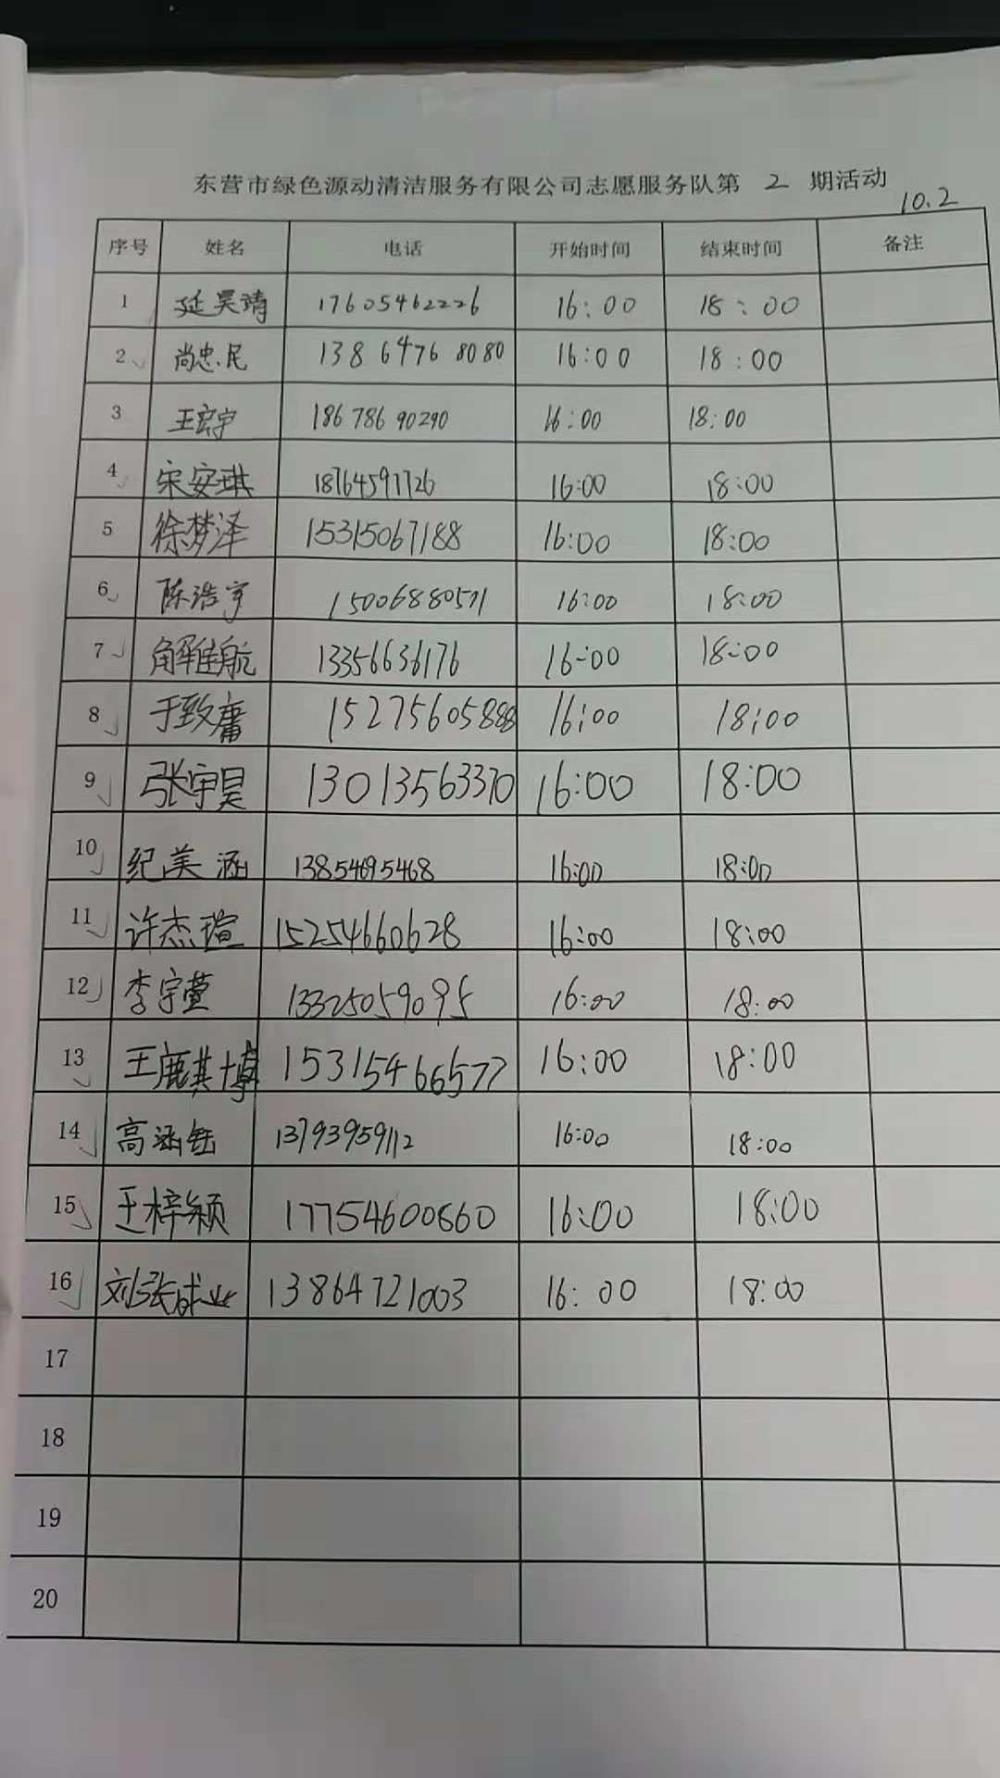 东营市绿色源动清洁服务有限公司志愿服务队第 2 期活动
10.2
序号 姓名 电话 开始时间 结束时间 备注
1 延昊靖 17605462226 16:00 18:00
2 尚忠民 13864768080 16:00 18:00
3 王宏宇 18678690290 16:00 18:00
4 宋安琪 18764597726 16:00 18:00
5 徐梦泽 15315067188 16:00 18:00
6 陈浩宇 15006880571 16:00 18:00
7 解维航 13356636176 16:00 18:00
8 于致庸 15275605888 16:00 18:00
9 张宇昊 13013563370 16:00 18:00
10 纪美涵 13854695468 16:00 18:00
11 许杰瑄 15254660628 16:00 18:00
12 李宇萱 13325059095 16:00 18:00
13 王鹿其博 15315466577 16:00 18:00
14 高涵钰 13793959112 16:00 18:00
15 王梓颖 17754600860 16:00 18:00
16 刘张成业 13864721003 16:00 18:00
17
18
19
20